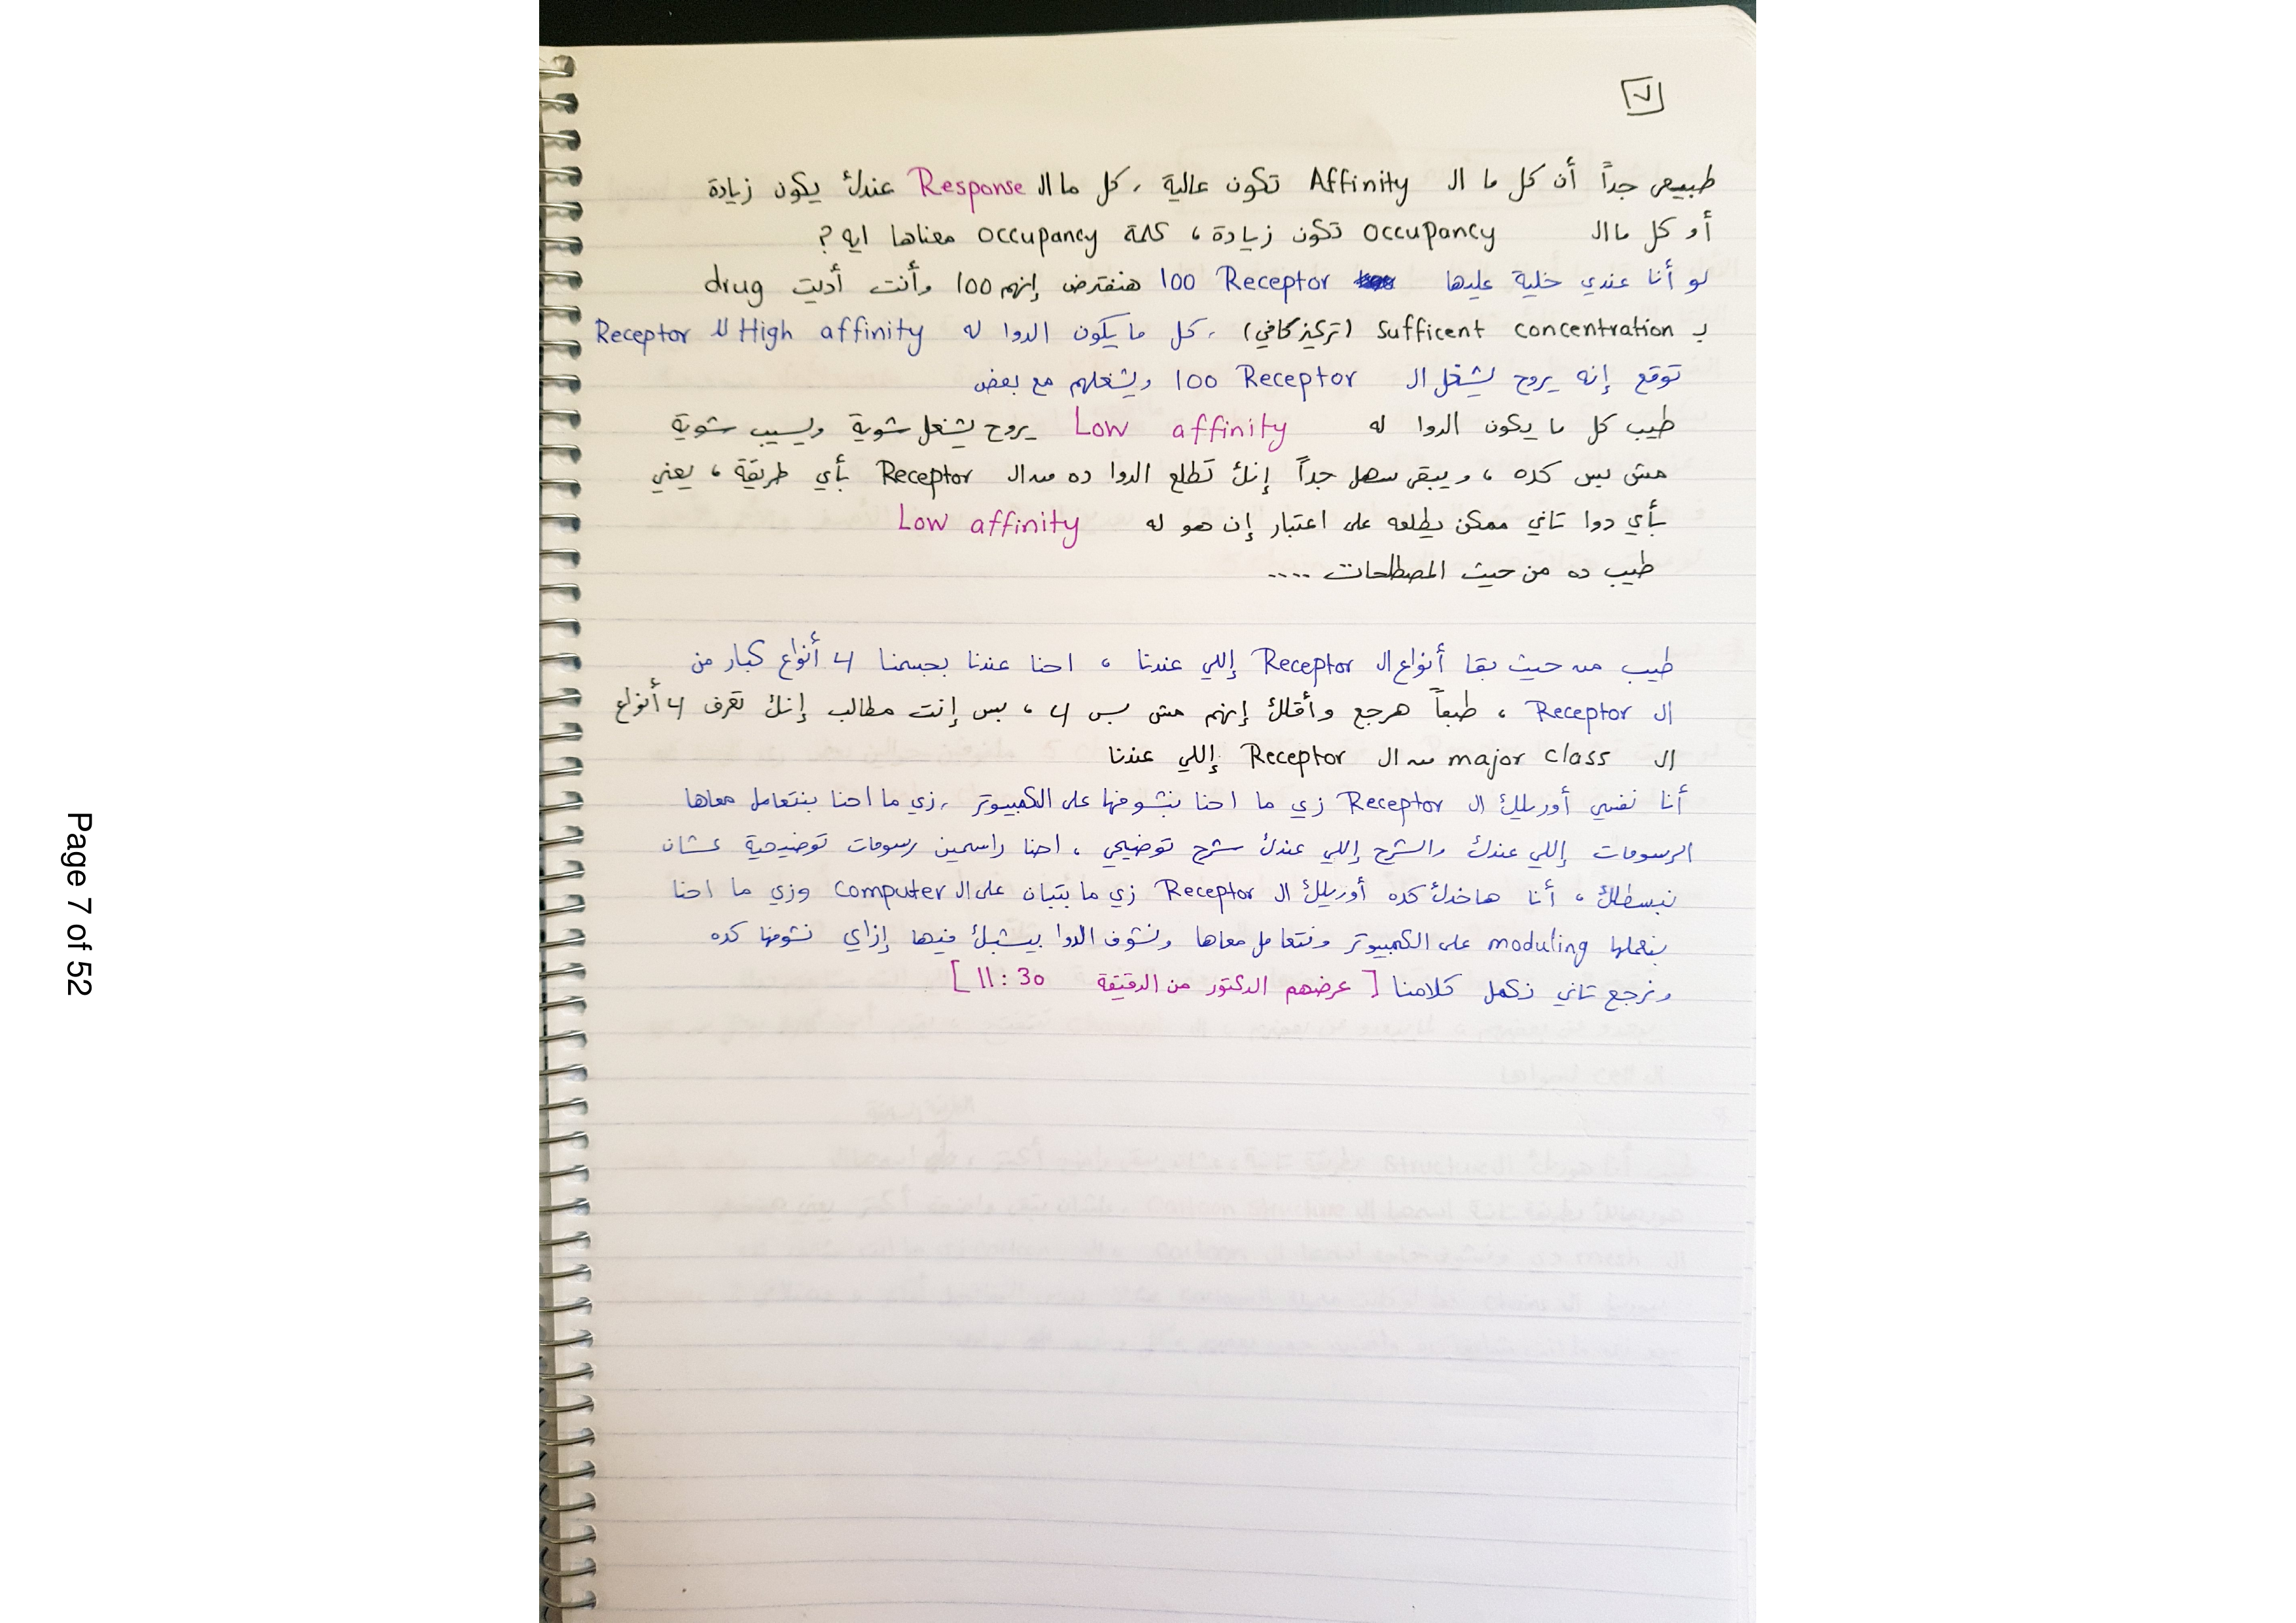 ٧
طبيعي جداً أن كل ما ال Affinity تكون عالية ، كل ما ال Response عندك يكون زيادة
أو كل ما ال occupancy تكون زيادة ، كلمة occupancy معناها ايه ؟
لو أنا عندي خلية عليها 100 Receptor هنفترض إنهم 100 وأنت أديت drug
بـ Sufficent concentration (تركيز كافي) ، كل ما يكون الدوا له High affinity لل Receptor
توقع إنه يروح يشغل ال 100 Receptor ويشغلهم مع بعض
طيب كل ما يكون الدوا له Low affinity يروح يشغل شوية ويسيب شوية
مش بس كده ، ويبقى سهل جداً إنك تطلع الدوا ده من ال Receptor بأي طريقة ، يعني
بأي دوا تاني ممكن يطلعه على اعتبار إن هو له Low affinity
طيب ده من حيث المصطلحات ....
طيب من حيث بقا أنواع ال Receptor إللي عندنا ، احنا عندنا بجسمنا 4 أنواع كبار من
ال Receptor ، طبعاً هرجع وأقلك إنهم مش بس 4 ، بس إنت مطالب إنك تعرف 4 أنواع
ال major class من ال Receptor إللي عندنا
أنا نفسي أوريلك ال Receptor زي ما احنا بنشوفها على الكمبيوتر ، زي ما احنا بنتعامل معاها
الرسومات إللي عندك والشرح إللي عندك شرح توضيحي ، احنا راسمين رسومات توضيحية عشان
نبسطلك ، أنا هاخدك كده أوريلك ال Receptor زي ما بتبان على ال Computer وزي ما احنا
بنعملها moduling على الكمبيوتر ونتعامل معاها ونشوف الدوا بيشبك فيها إزاي نشوفها كده
ونرجع تاني نكمل كلامنا [ عرضهم الدكتور من الدقيقة 11:30 ]
Page 7 of 52